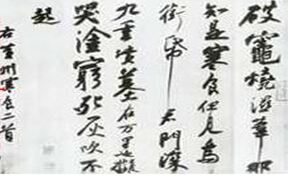 破竈燒溼葦那
知是寒食但見烏
銜帋君門深
九重墳墓在万里也擬
哭塗窮死灰吹不
起
右黃州寒食二首